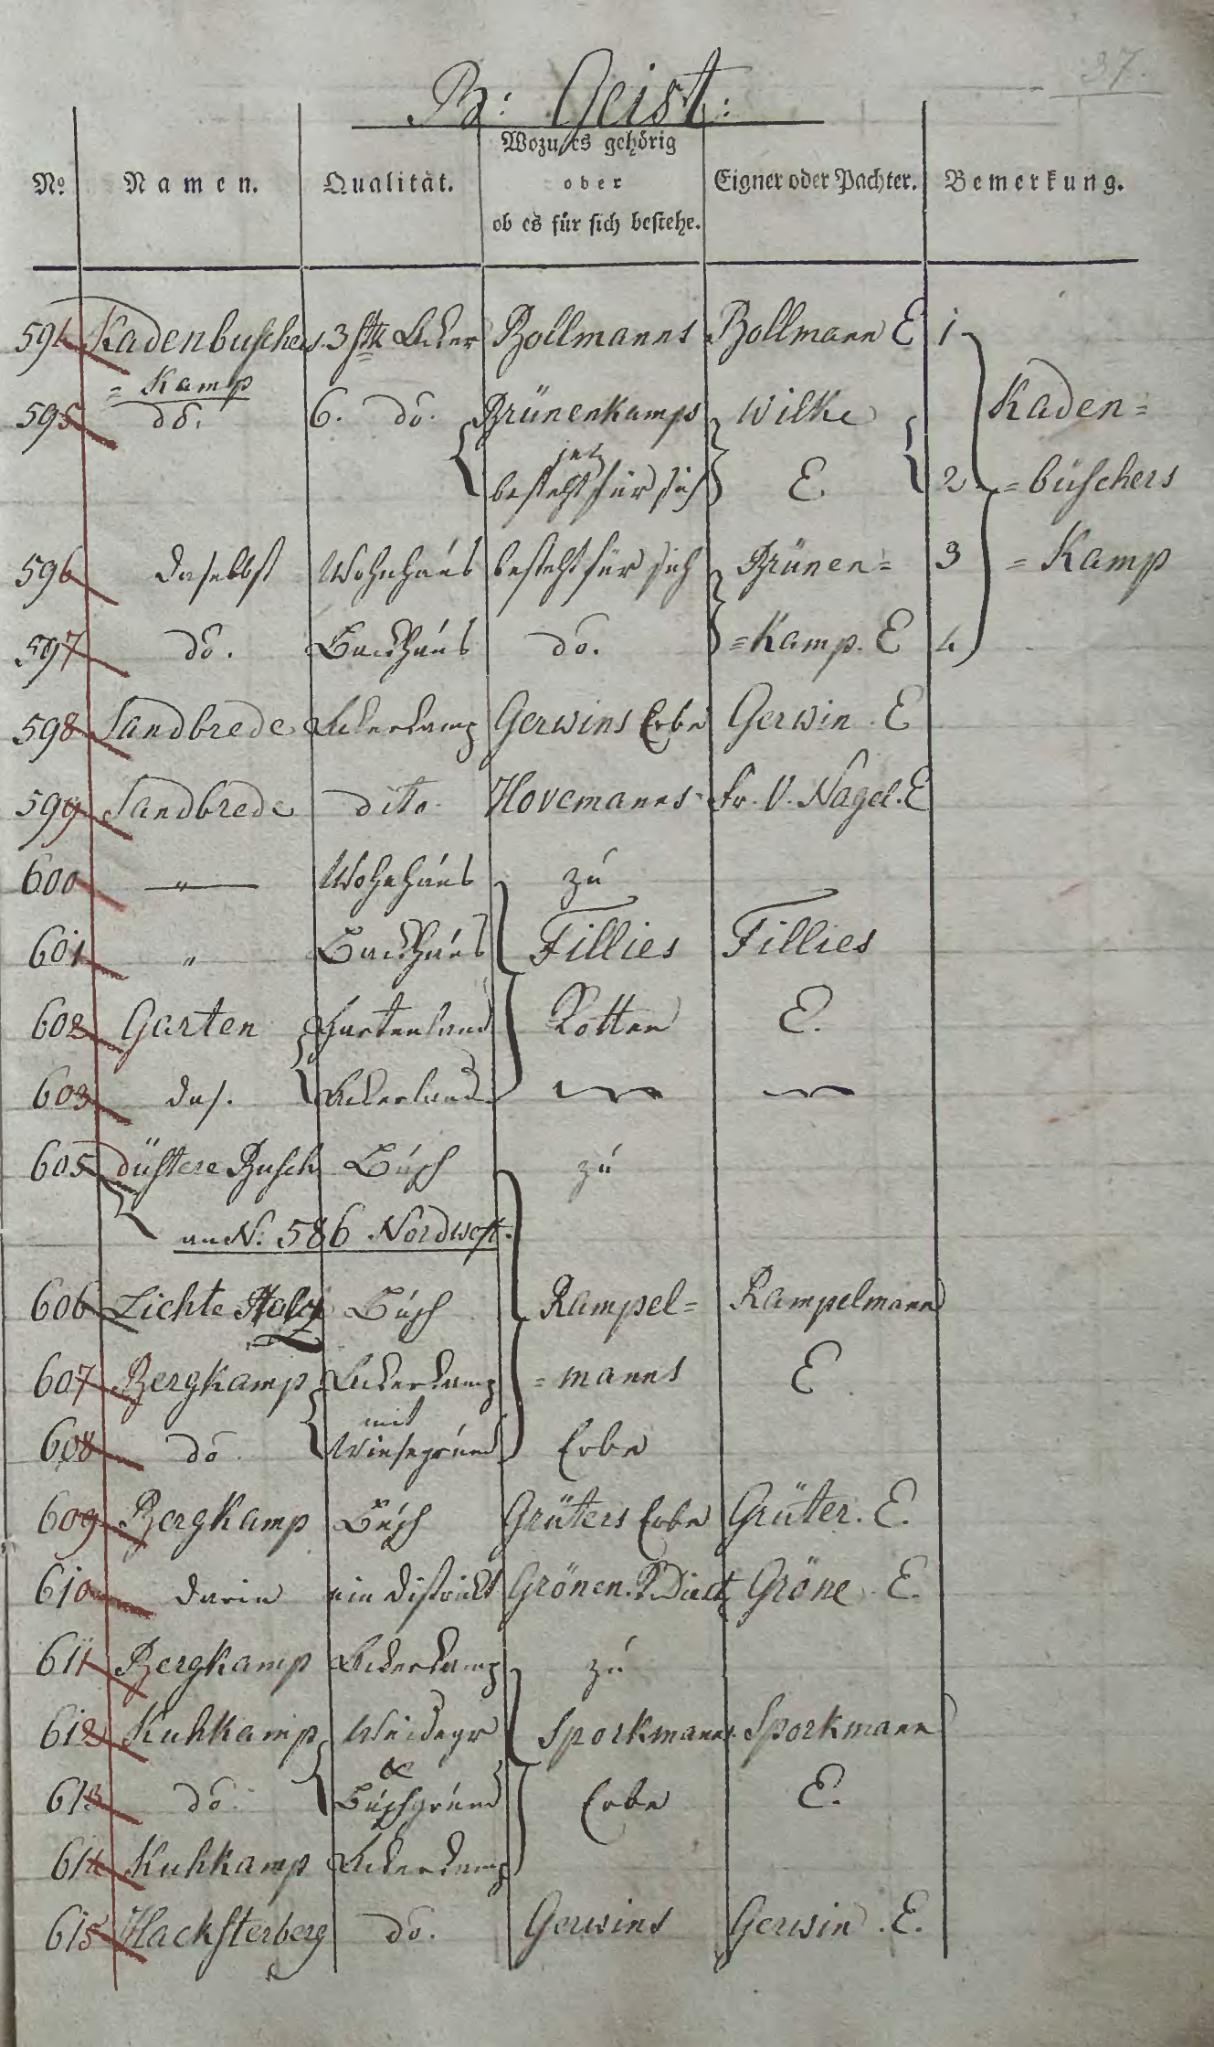 37.
B: Geist:
No. Namen. Qualität. Wozu es gehörig oder ob es für sich bestehe. Eigner oder Pachter. Bemerkung.
594 Kadenbuschers 3 Stk Acker Bollmanns Bollmann E 1
= Kamp
595 do. 6. do. Brünenkamps Wilke Kaden=
jetz
besteht für sich E. 2 =büschers
596 daselbst Wohnhaus besteht für sich Brünen= 3 =Kamp
597 do. Backhaus do. =Kamp. E 4
598 Sandbrede Ackerkamp Gerwins Erbe Gerwin. E
599 Sandbrede dito. Hovemanns Fr. V. Nagel. E
600 " Wohnhaus zu
601 " Backhaus Fillies Fillies
602 Garten Gartenland Kotten E.
603 das. Ackerland
605 düstere Busch Busch zu
an N: 586 Nordwest.
606 Lichte Holz Busch Rampel= Rampelmann
607 Bergkamp Ackerkamp =manns E
mit
608 do. Wiesegrund Erbe
609 Bergkamp Busch Grüters Erbe Grüter. E.
610 darin ein District Grönen. Gröne. E.
611 Bergkamp Ackerkamp zu
612 Kuhkamp Weidegr Sporkmanns Sporkmann
&
613 do. Buschgrund Erbe E.
614 Kuhkamp Ackerkamp
615 Hacksterberg do. Gerwins Gerwin. E.